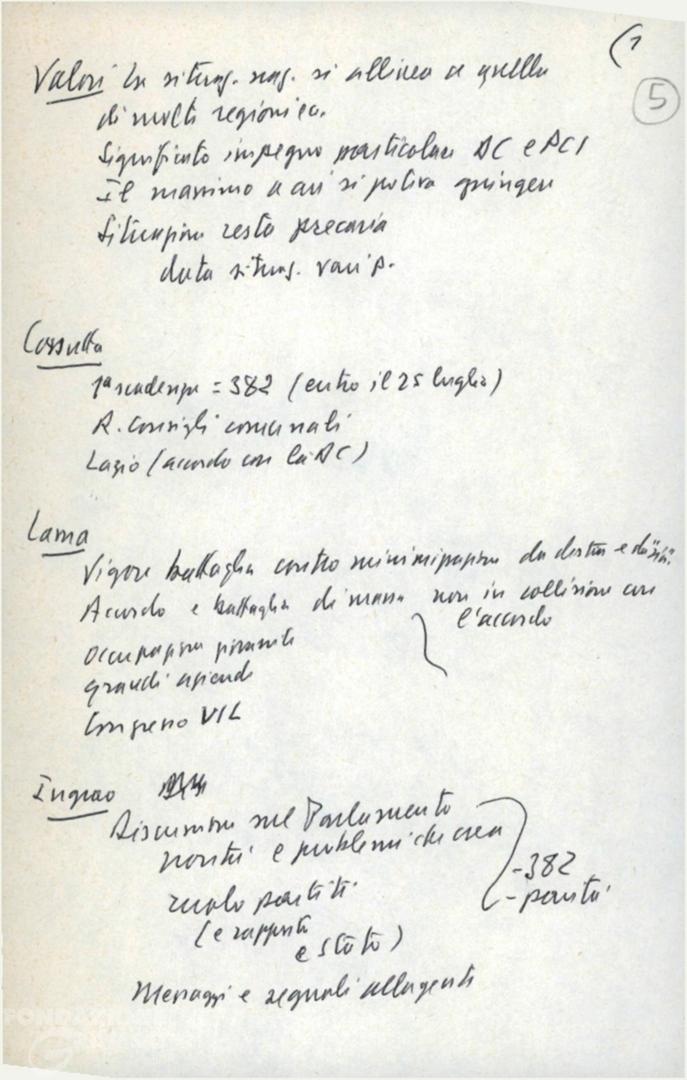 (1
5
Valori La situaz. naz. si allinea a quella
di molte regioni ec.
Significato impegno particolare DC e PCI
Il massimo a cui si poteva giungere
Situazione resta precaria
data situaz. vari p.
Cossutta
1ª scadenza = 382 (entro il 25 luglio)
A. Consigli comunali
Lazio (accordo con la DC)
Lama
Vigore battaglia contro minimizzazione da destra e da "sin."
Accordo e battaglia di massa non in collisione con
l'accordo
Occupazione giovanile
grandi aziende
Congresso UIL
Ingrao
Discussione sul Parlamento
novità e problemi che crea
- 382
- parità
ruolo partiti
(e rapporti
e Stato)
Messaggi e segnali
FONDAZIONE